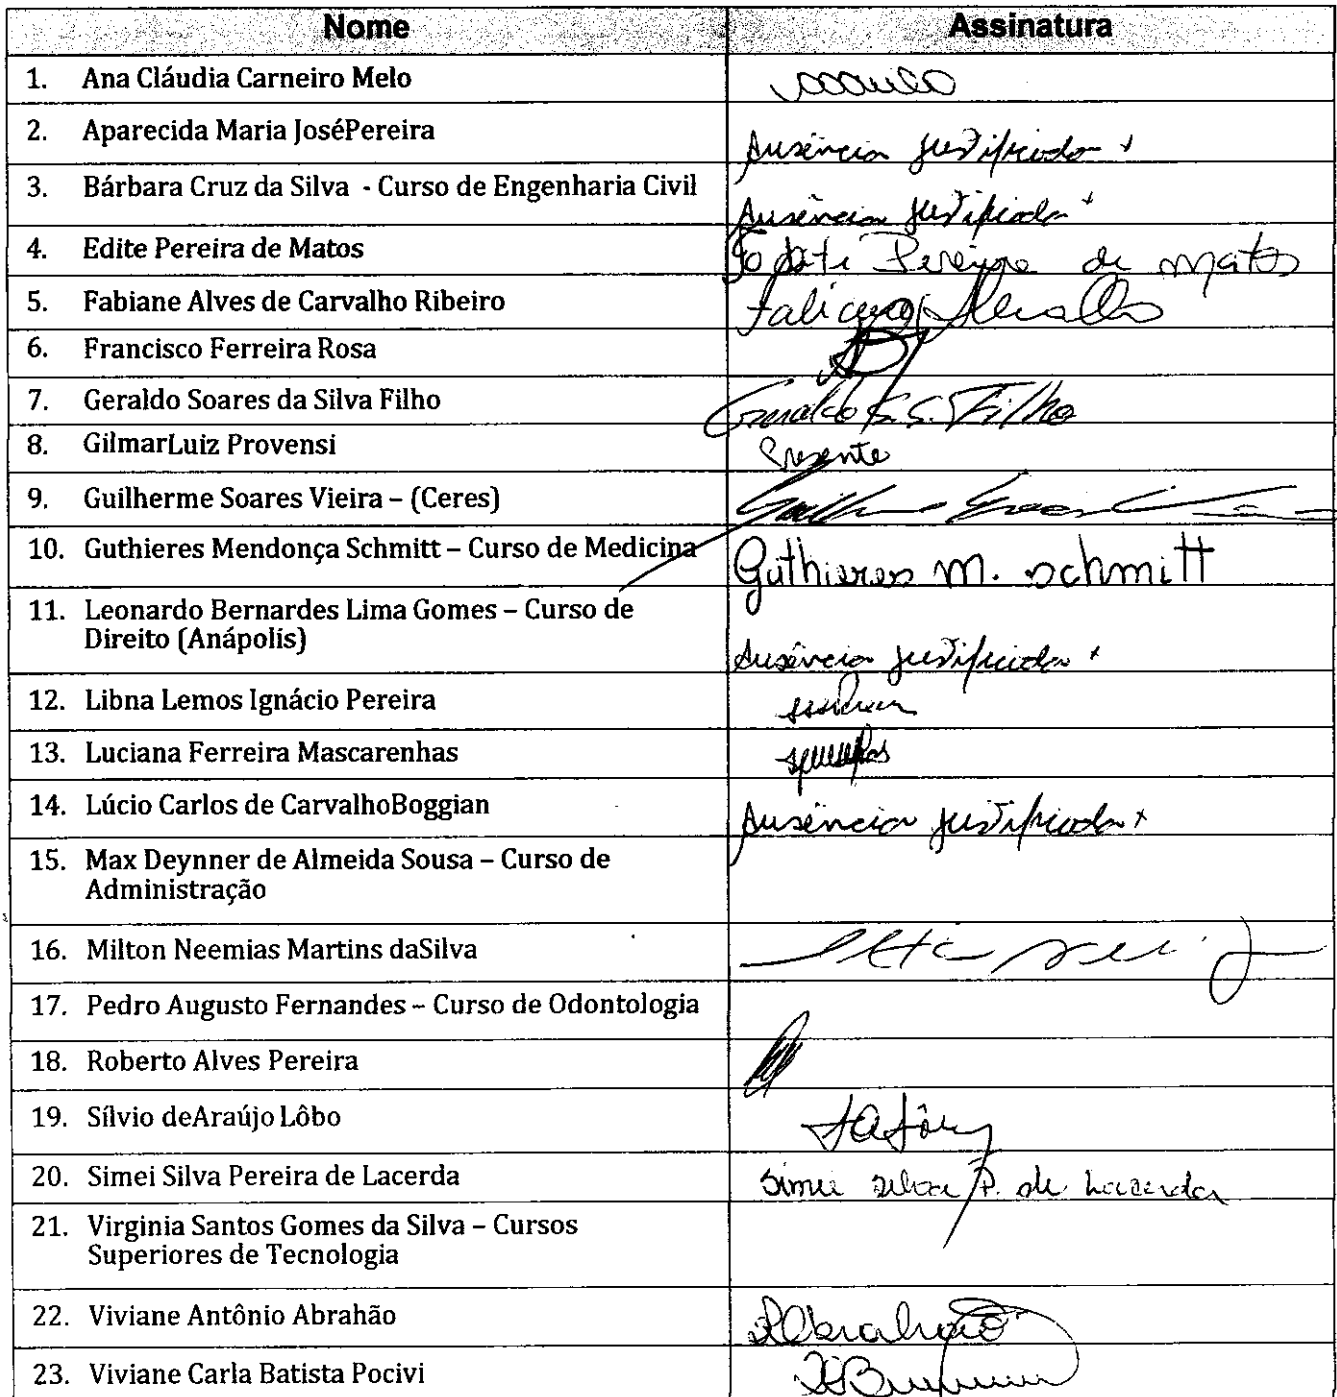 Nome Assinatura
1. Ana Cláudia Carneiro Melo
2. Aparecida Maria JoséPereira Ausência justificada
3. Bárbara Cruz da Silva - Curso de Engenharia Civil Ausência justificada
4. Edite Pereira de Matos Edite Pereira de Matos
5. Fabiane Alves de Carvalho Ribeiro
6. Francisco Ferreira Rosa
7. Geraldo Soares da Silva Filho Geraldo S. S. Filho
8. GilmarLuiz Provensi Presente
9. Guilherme Soares Vieira – (Ceres)
10. Guthieres Mendonça Schmitt – Curso de Medicina Guthieres M. Schmitt
11. Leonardo Bernardes Lima Gomes – Curso de
Direito (Anápolis) Ausência justificada
12. Libna Lemos Ignácio Pereira
13. Luciana Ferreira Mascarenhas
14. Lúcio Carlos de CarvalhoBoggian Ausência justificada
15. Max Deynner de Almeida Sousa – Curso de
Administração
16. Milton Neemias Martins daSilva
17. Pedro Augusto Fernandes – Curso de Odontologia
18. Roberto Alves Pereira
19. Sílvio deAraújo Lôbo
20. Simei Silva Pereira de Lacerda Simei Silva P. de Lacerda
21. Virginia Santos Gomes da Silva – Cursos
Superiores de Tecnologia
22. Viviane Antônio Abrahão
23. Viviane Carla Batista Pocivi